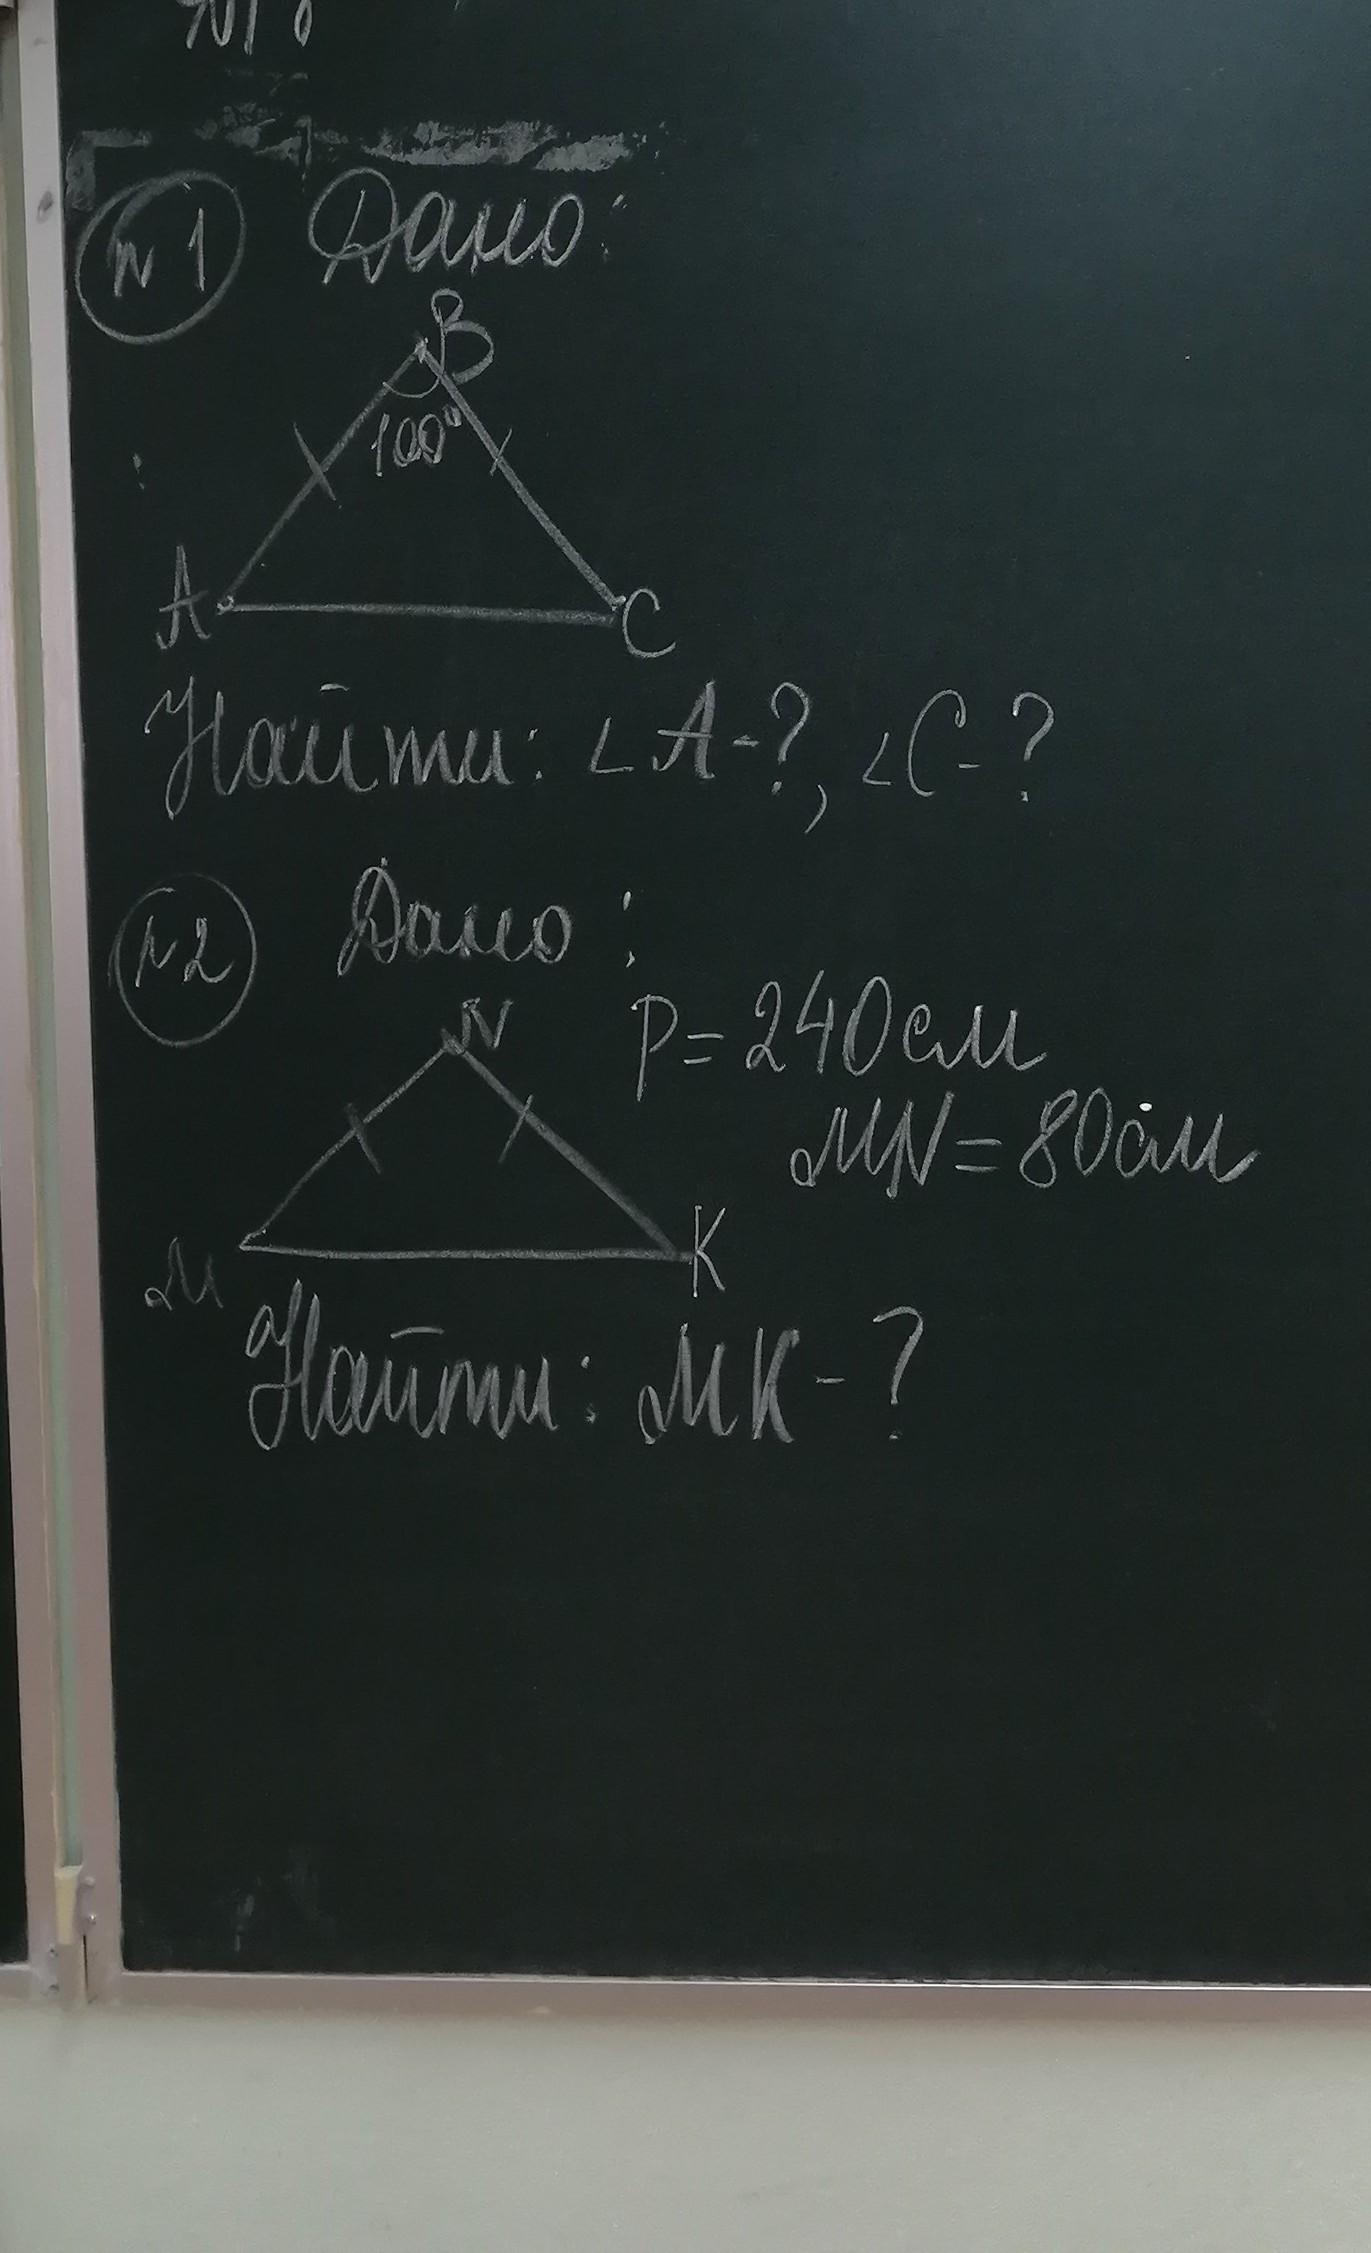 №1 Дано:
B
100°
A C
Найти: ∠A-?, ∠C-?
№2 Дано:
N P=240см
MN=80см
M K
Найти: MK-?